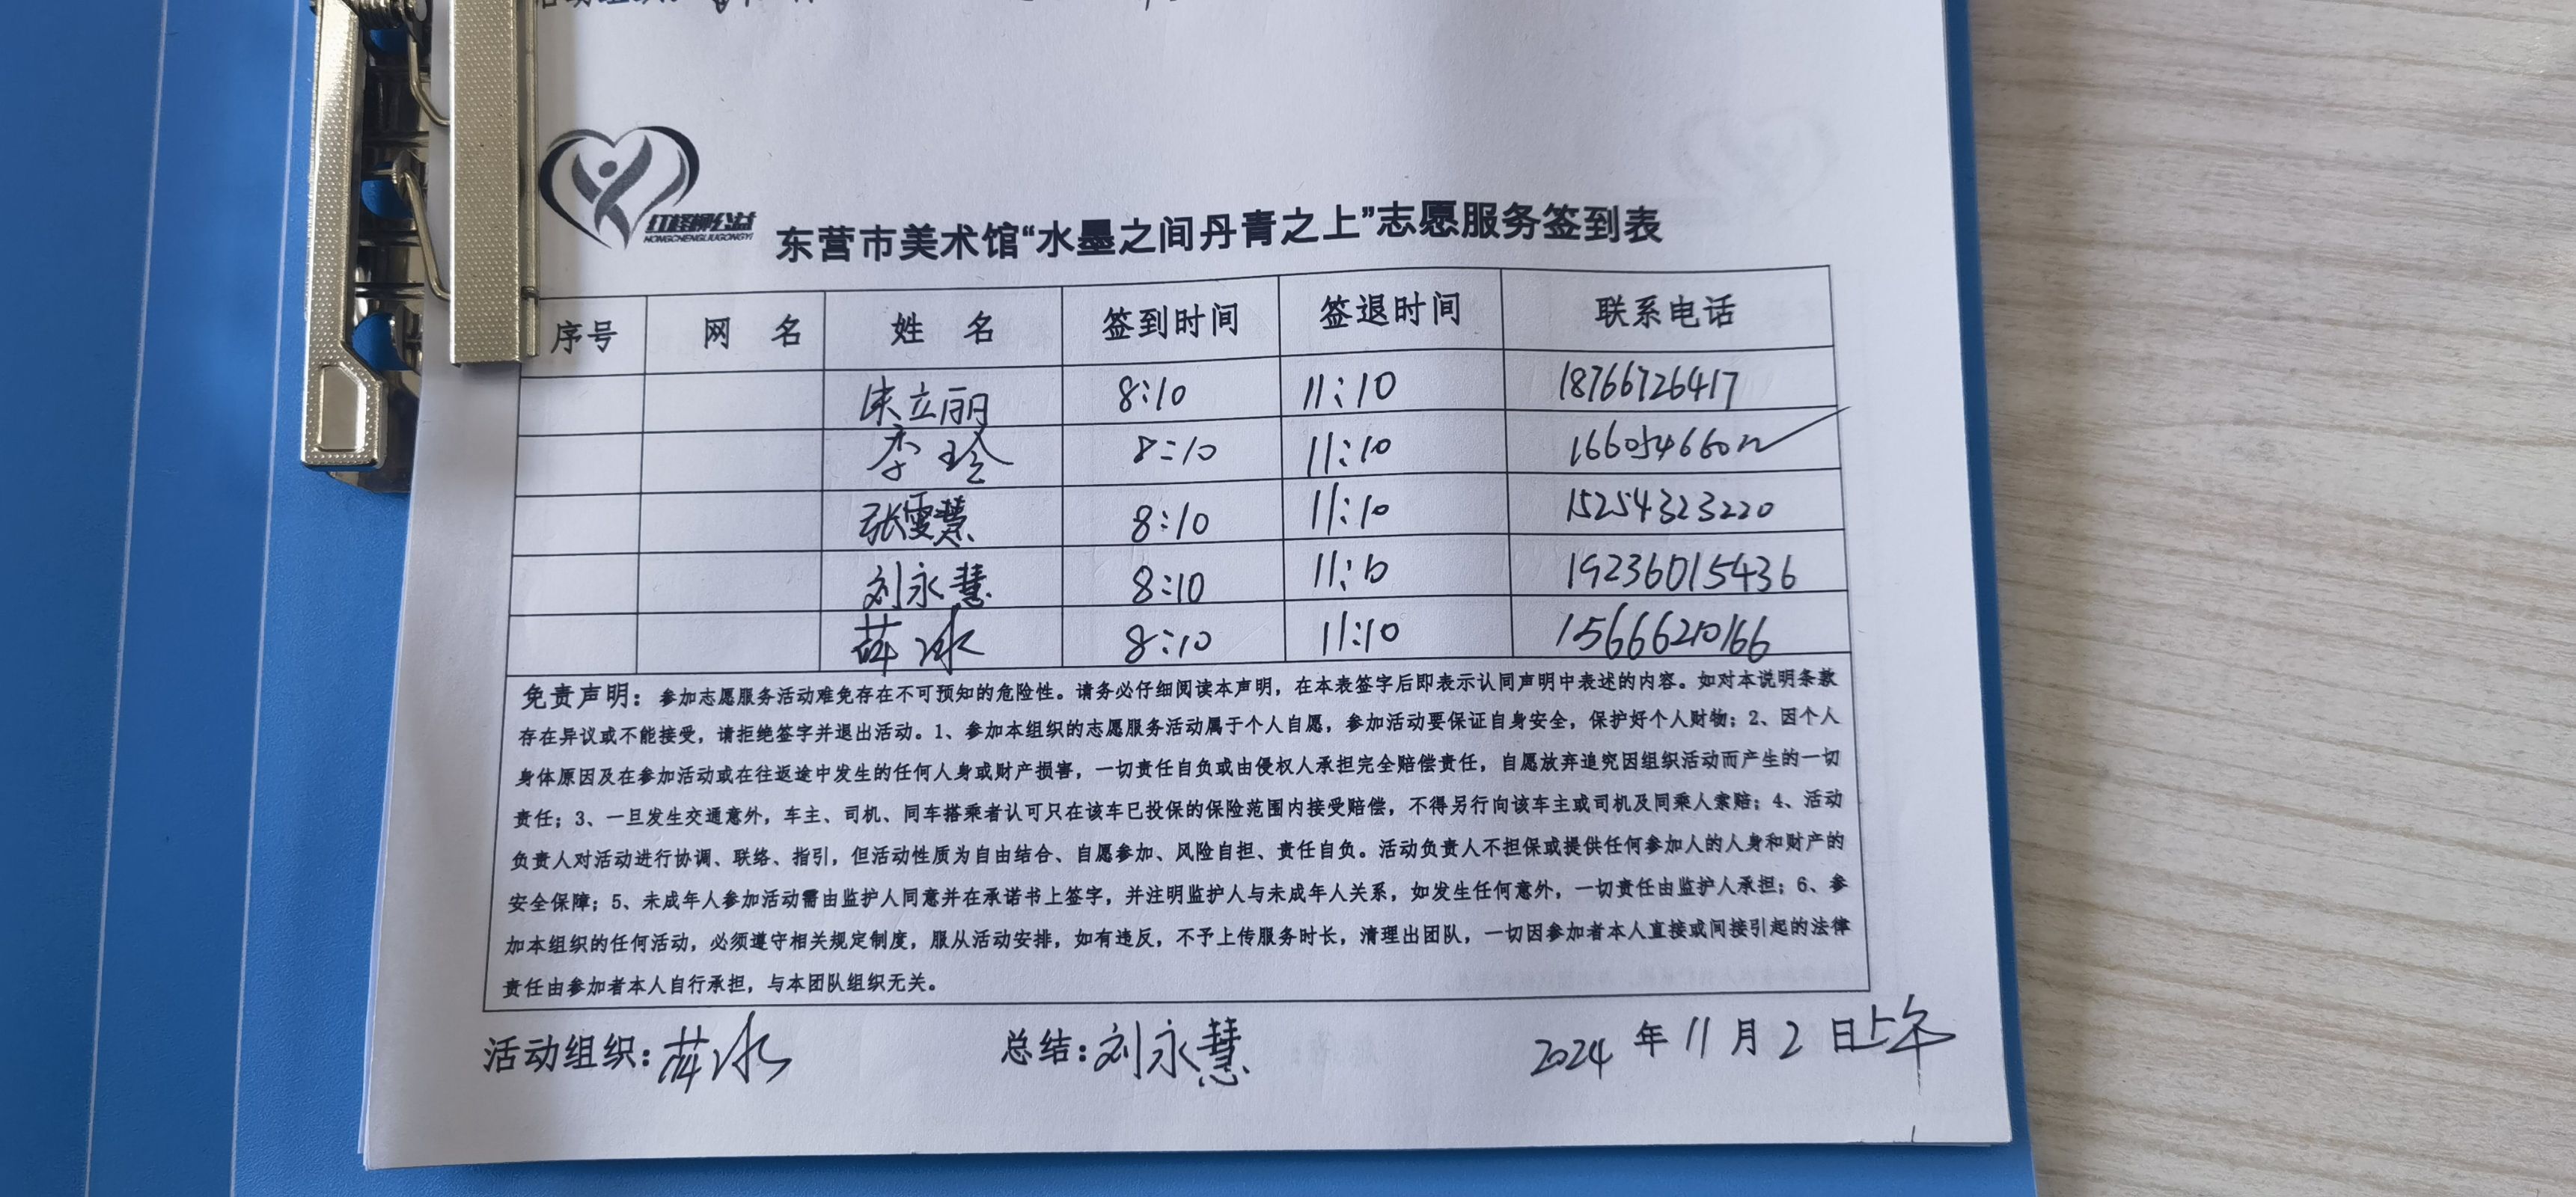 红柽柳公益
HONGCHENGLIUGONGYI
东营市美术馆“水墨之间丹青之上”志愿服务签到表
序号 网 名 姓 名 签到时间 签退时间 联系电话
朱立丽 8:10 11:10 18766726417
李玲 8:10 11:10
张雯慧 8:10 11:10 15254323220
刘永慧 8:10 11:10 19236015436
薛冰 8:10 11:10 15666210166
免责声明：参加志愿服务活动难免存在不可预知的危险性。请务必仔细阅读本声明，在本表签字后即表示认同声明中表述的内容。如对本说明条款
存在异议或不能接受，请拒绝签字并退出活动。1、参加本组织的志愿服务活动属于个人自愿，参加活动要保证自身安全，保护好个人财物；2、因个人
身体原因及在参加活动或在往返途中发生的任何人身或财产损害，一切责任自负或由侵权人承担完全赔偿责任，自愿放弃追究因组织活动而产生的一切
责任；3、一旦发生交通意外，车主、司机、同车搭乘者认可只在该车已投保的保险范围内接受赔偿，不得另行向该车主或司机及同乘人索赔；4、活动
负责人对活动进行协调、联络、指引，但活动性质为自由结合、自愿参加、风险自担、责任自负。活动负责人不担保或提供任何参加人的人身和财产的
安全保障；5、未成年人参加活动需由监护人同意并在承诺书上签字，并注明监护人与未成年人关系，如发生任何意外，一切责任由监护人承担；6、参
加本组织的任何活动，必须遵守相关规定制度，服从活动安排，如有违反，不予上传服务时长，清理出团队，一切因参加者本人直接或间接引起的法律
责任由参加者本人自行承担，与本团队组织无关。
活动组织：薛冰 总结：刘永慧 2024 年 11 月 2 日上午